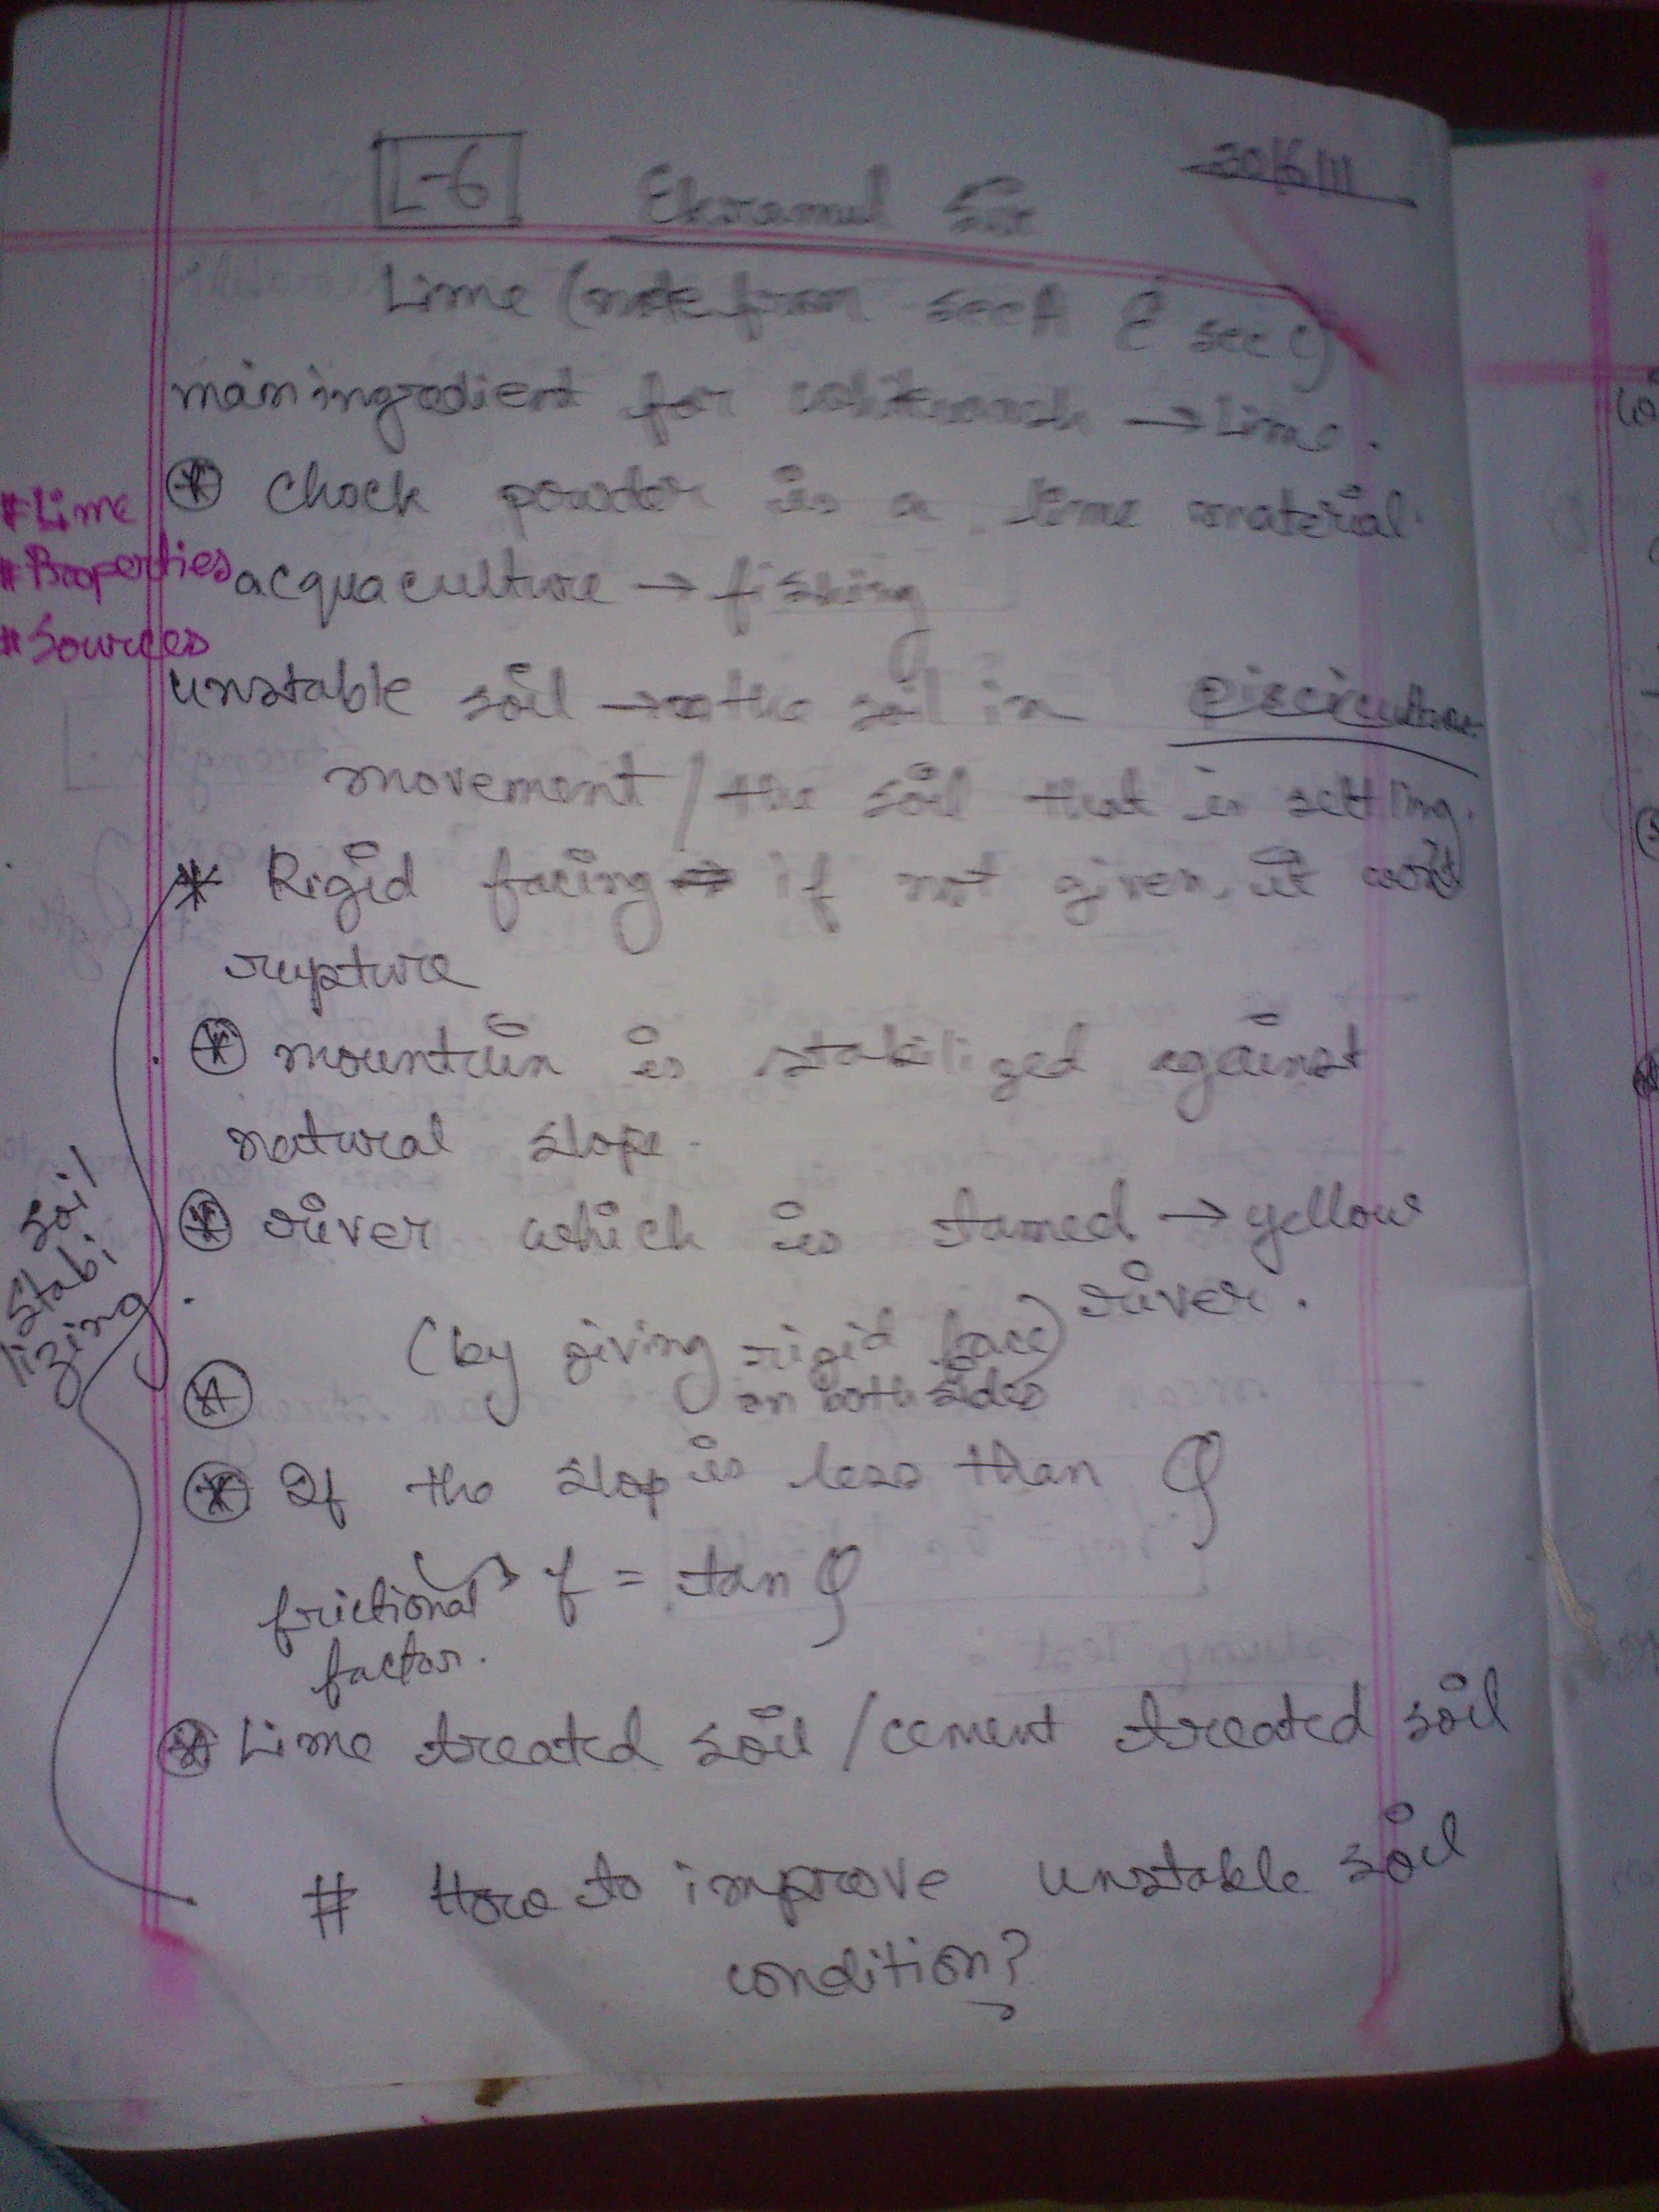 L-6 Ekramul Sir 30/6/11
Lime (note from sec A & sec C)
main ingredient for whitewash → Lime.
* Chock powder is a lime material.
#Lime
#Properties
#Sources
acquaculture → fishing
unstable soil → the soil in
movement / the soil that is settling.
* Rigid facing → if not given, it won't
rupture
* mountain is stabilized against
natural slope.
* river which is tamed → yellow
river.
(by giving rigid face)
on both sides
*
* If the slop is less than φ
frictional → f = tan φ
factor.
* Lime treated soil / cement treated soil
# How to improve unstable soil
condition?
soil
stabi
lizing